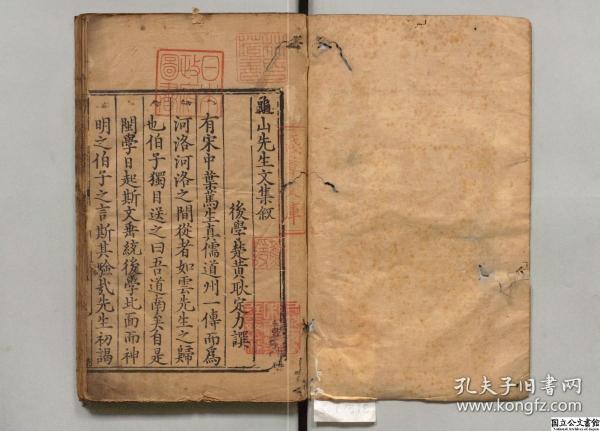 龜山先生文集叙
後學楚黄耿定力譔
有宋中葉篤生真儒道州一傳而爲
河洛河洛之間從者如雲先生之歸
也伯子獨目送之曰吾道南矣自是
閩學日起斯文垂統後學北面而神
明之伯子之言斯其驗弐先生初謁
日本
政府
圖書
孔夫子旧书网
www.kongfz.com
国立公文書館
National Archives of Japan